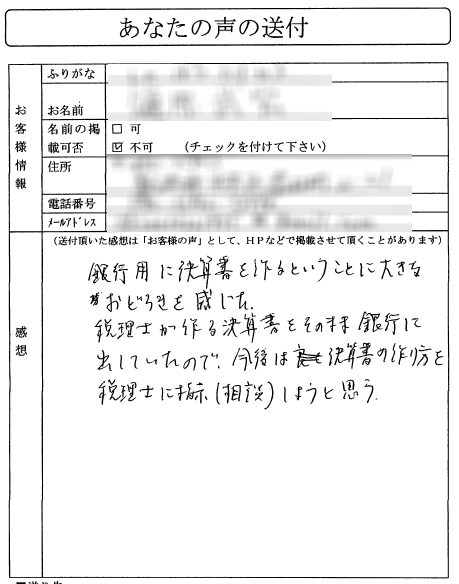 あなたの声の送付
お客様情報
ふりがな
お名前
名前の掲載可否
□ 可
☑ 不可 (チェックを付けて下さい)
住所
電話番号
メールアドレス
感想
(送付頂いた感想は「お客様の声」として、HPなどで掲載させて頂くことがあります)
銀行用に決算書を作るということに大きな
おどろきを感じた。
税理士が作る決算書をそのまま銀行に
出していたので、今後は決算書の作り方を
税理士に指示(相談)しようと思う。